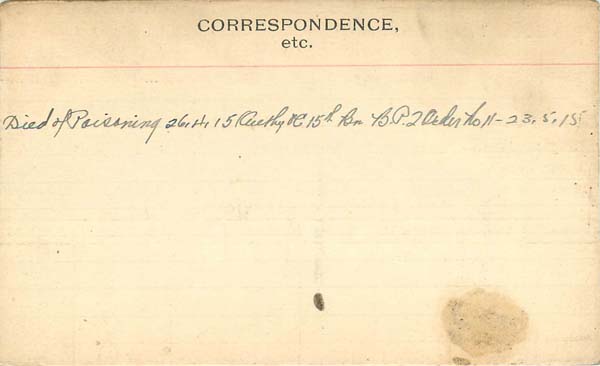 CORRESPONDENCE,
etc.
Died of Poisoning 26.4.15 Authy OC 15th Bn B.P. 2 Order No 11 - 23.5.15